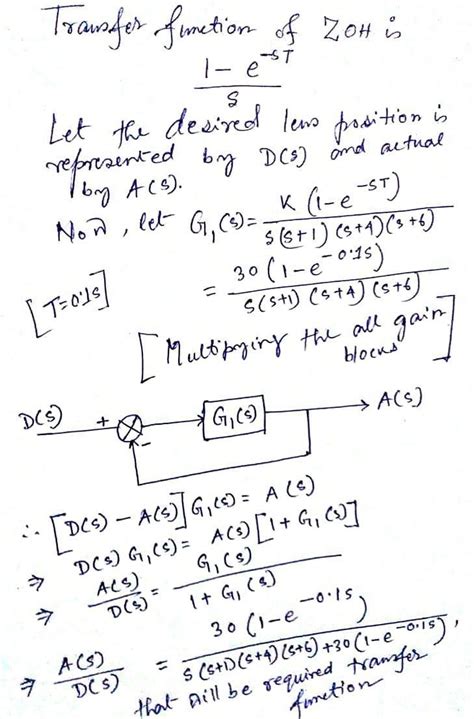 Transfer function of ZOH is
1 - e^-sT
s
Let the desired lens position is
represented by D(s) and actual
by A(s).
Now, let G₁(s) = K (1-e^-sT) / s(s+1)(s+4)(s+6)
[T=0.1s] = 30(1-e^-0.1s) / s(s+1)(s+4)(s+6)
[Multipying the all gain
blocks]
D(s) + - G₁(s) A(s)
∴ [D(s) - A(s)] G₁(s) = A(s)
⇒ D(s) G₁(s) = A(s) [1 + G₁(s)]
⇒ A(s)/D(s) = G₁(s) / 1 + G₁(s)
⇒ A(s)/D(s) = 30(1-e^-0.1s) / s(s+1)(s+4)(s+6)+30(1-e^-0.1s),
that will be required transfer
function